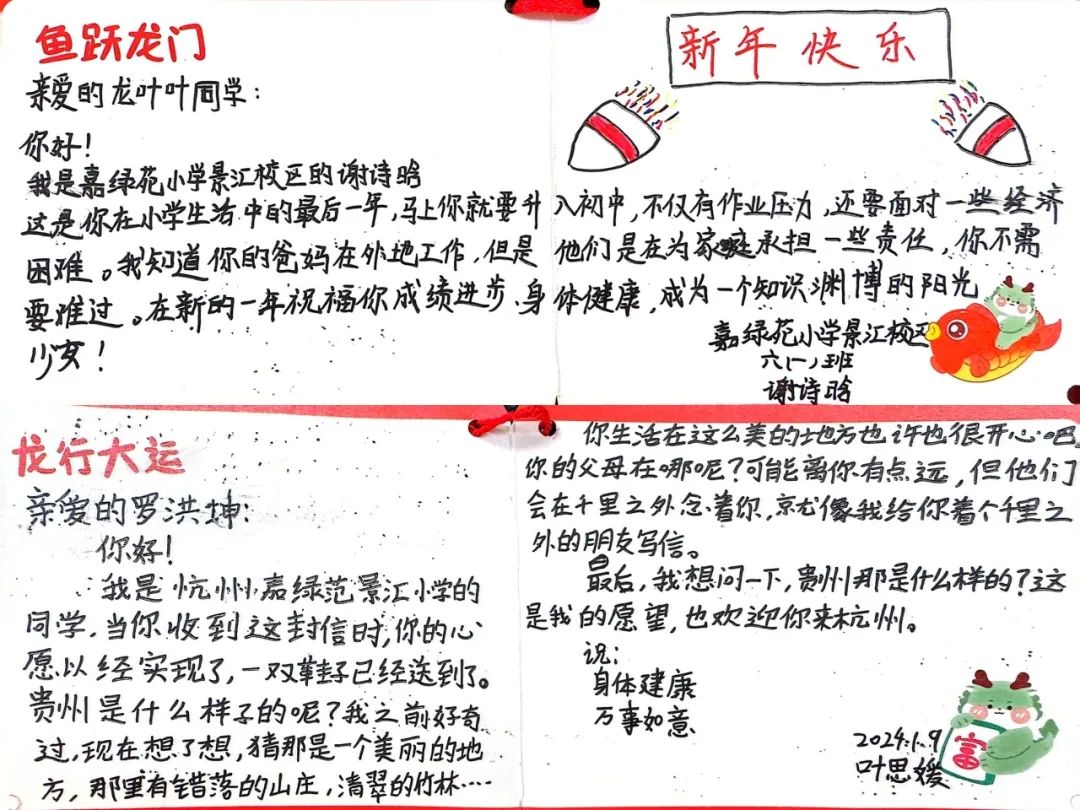 鱼跃龙门
亲爱的龙叶叶同学：
你好！
我是嘉绿苑小学景汇校区的谢诗晗
新年快乐
这是你在小学生活中的最后一年，马上你就要升入初中，不仅有作业压力，还要面对一些经济
困难。我知道你的爸妈在外地工作，但是他们是在为家庭承担一些责任，你不需
要难过。在新的一年祝福你成绩进步、身体健康，成为一个知识渊博的阳光
少女！
嘉绿苑小学景汇校区
六(一)班
谢诗晗
龙行大运
亲爱的罗洪坤：
你好！
我是杭州嘉绿范景汇小学的
同学，当你收到这封信时，你的心
愿以经实现了，一双鞋子已经送到了。
贵州是什么样子的呢？我之前好奇
过，现在想了想，猜那是一个美丽的地
方，那里有错落的山庄，清翠的竹林……
你生活在这么美的地方也许也很开心吧，
你的父母在哪呢？可能离你有点远，但他们
会在千里之外念着你，京尤像我给你着个千里之
外的朋友写信。
最后，我想问一下，贵州那是什么样的？这
是我的愿望，也欢迎你来杭州。
祝：
身体建康
万事如意
2024.1.9
叶思媛
富